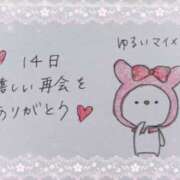 14日
嬉しい再会を
ありがとう
ゆるいマイメロ